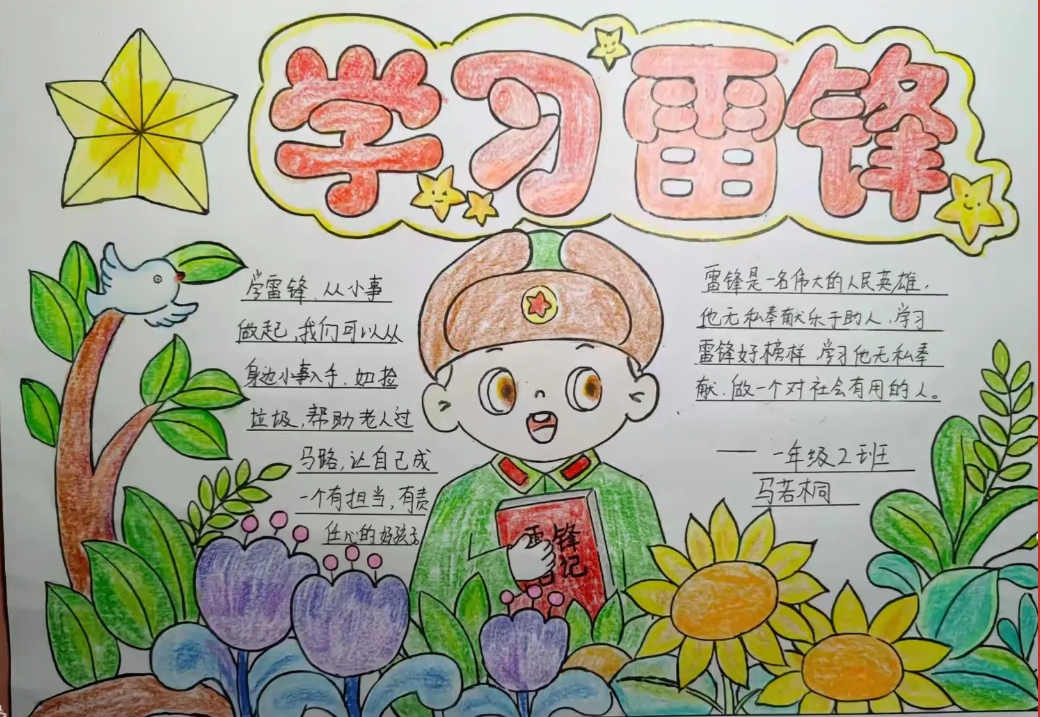 学习雷锋
学雷锋,从小事
做起,我们可以从
身边小事入手,如捡
垃圾,帮助老人过
马路,让自己成
一个有担当,有责
任心的好孩子
雷锋是一名伟大的人民英雄,
他无私奉献乐于助人,学习
雷锋好榜样 学习他无私奉
献,做一个对社会有用的人。
—— 一年级2班
马若桐
雷锋
日记